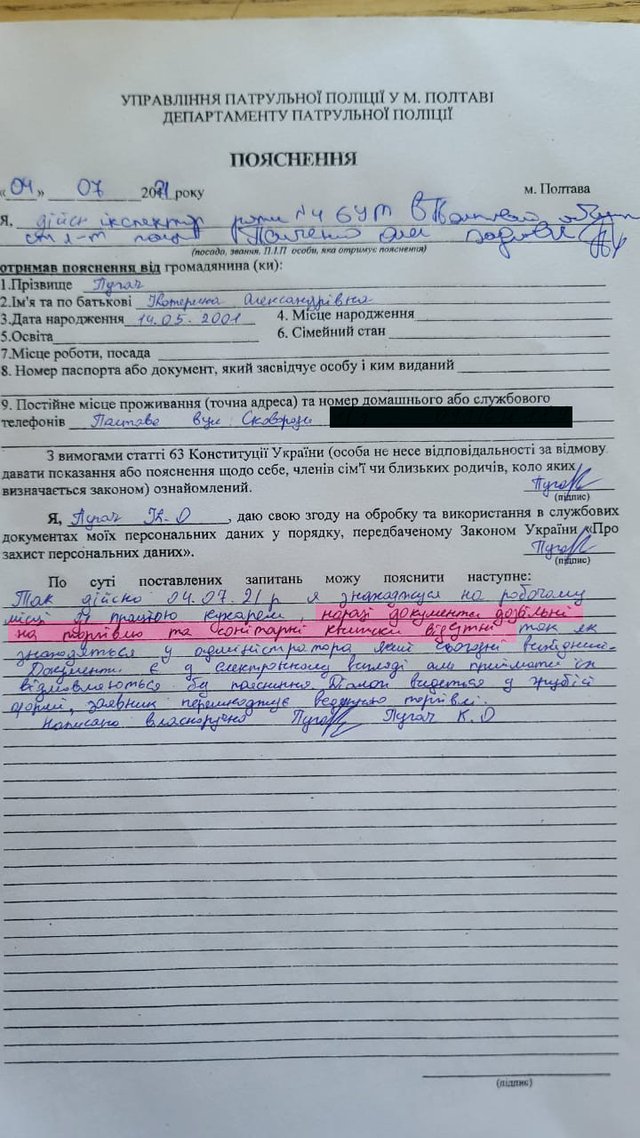 УПРАВЛІННЯ ПАТРУЛЬНОЇ ПОЛІЦІЇ У М. ПОЛТАВІ
ДЕПАРТАМЕНТУ ПАТРУЛЬНОЇ ПОЛІЦІЇ
ПОЯСНЕННЯ
«04» 07 2021 року м. Полтава
Я, інспектор роти №4 БУПП в
(посада, звання, П.І.П особи, яка отримує пояснення)
отримав пояснення від громадянина (ки):
1.Прізвище Пугач
2.Ім'я та по батькові Катерина Олександрівна
3.Дата народження 14.05.2001 4. Місце народження
5.Освіта 6. Сімейний стан
7.Місце роботи, посада
8. Номер паспорта або документ, який засвідчує особу і ким виданий
9. Постійне місце проживання (точна адреса) та номер домашнього або службового
телефонів Полтава вул Сковороди
З вимогами статті 63 Конституції України (особа не несе відповідальності за відмову
давати показання або пояснення щодо себе, членів сім'ї чи близьких родичів, коло яких
визначається законом) ознайомлений. Пугач
(підпис)
Я, Пугач К.О, даю свою згоду на обробку та використання в службових
документах моїх персональних даних у порядку, передбаченому Законом України «Про
захист персональних даних». Пугач
(підпис)
По суті поставлених запитань можу пояснити наступне:
Так дійсно 04.07.21р я знаходжуся на робочому
місці я працюю кухарем наразі документи дозвільні
на торгівлю та санітарні книжки відсутні так як
знаходяться у адміністратора який сьогодні вихідний.
Документи є у електронному вигляді але приймати їх
відмовляються без пояснення Діалог ведеться у грубій
формі, заявник перешкоджує веденню торгівлі.
Написано власноручно Пугач Пугач К.О
(підпис)